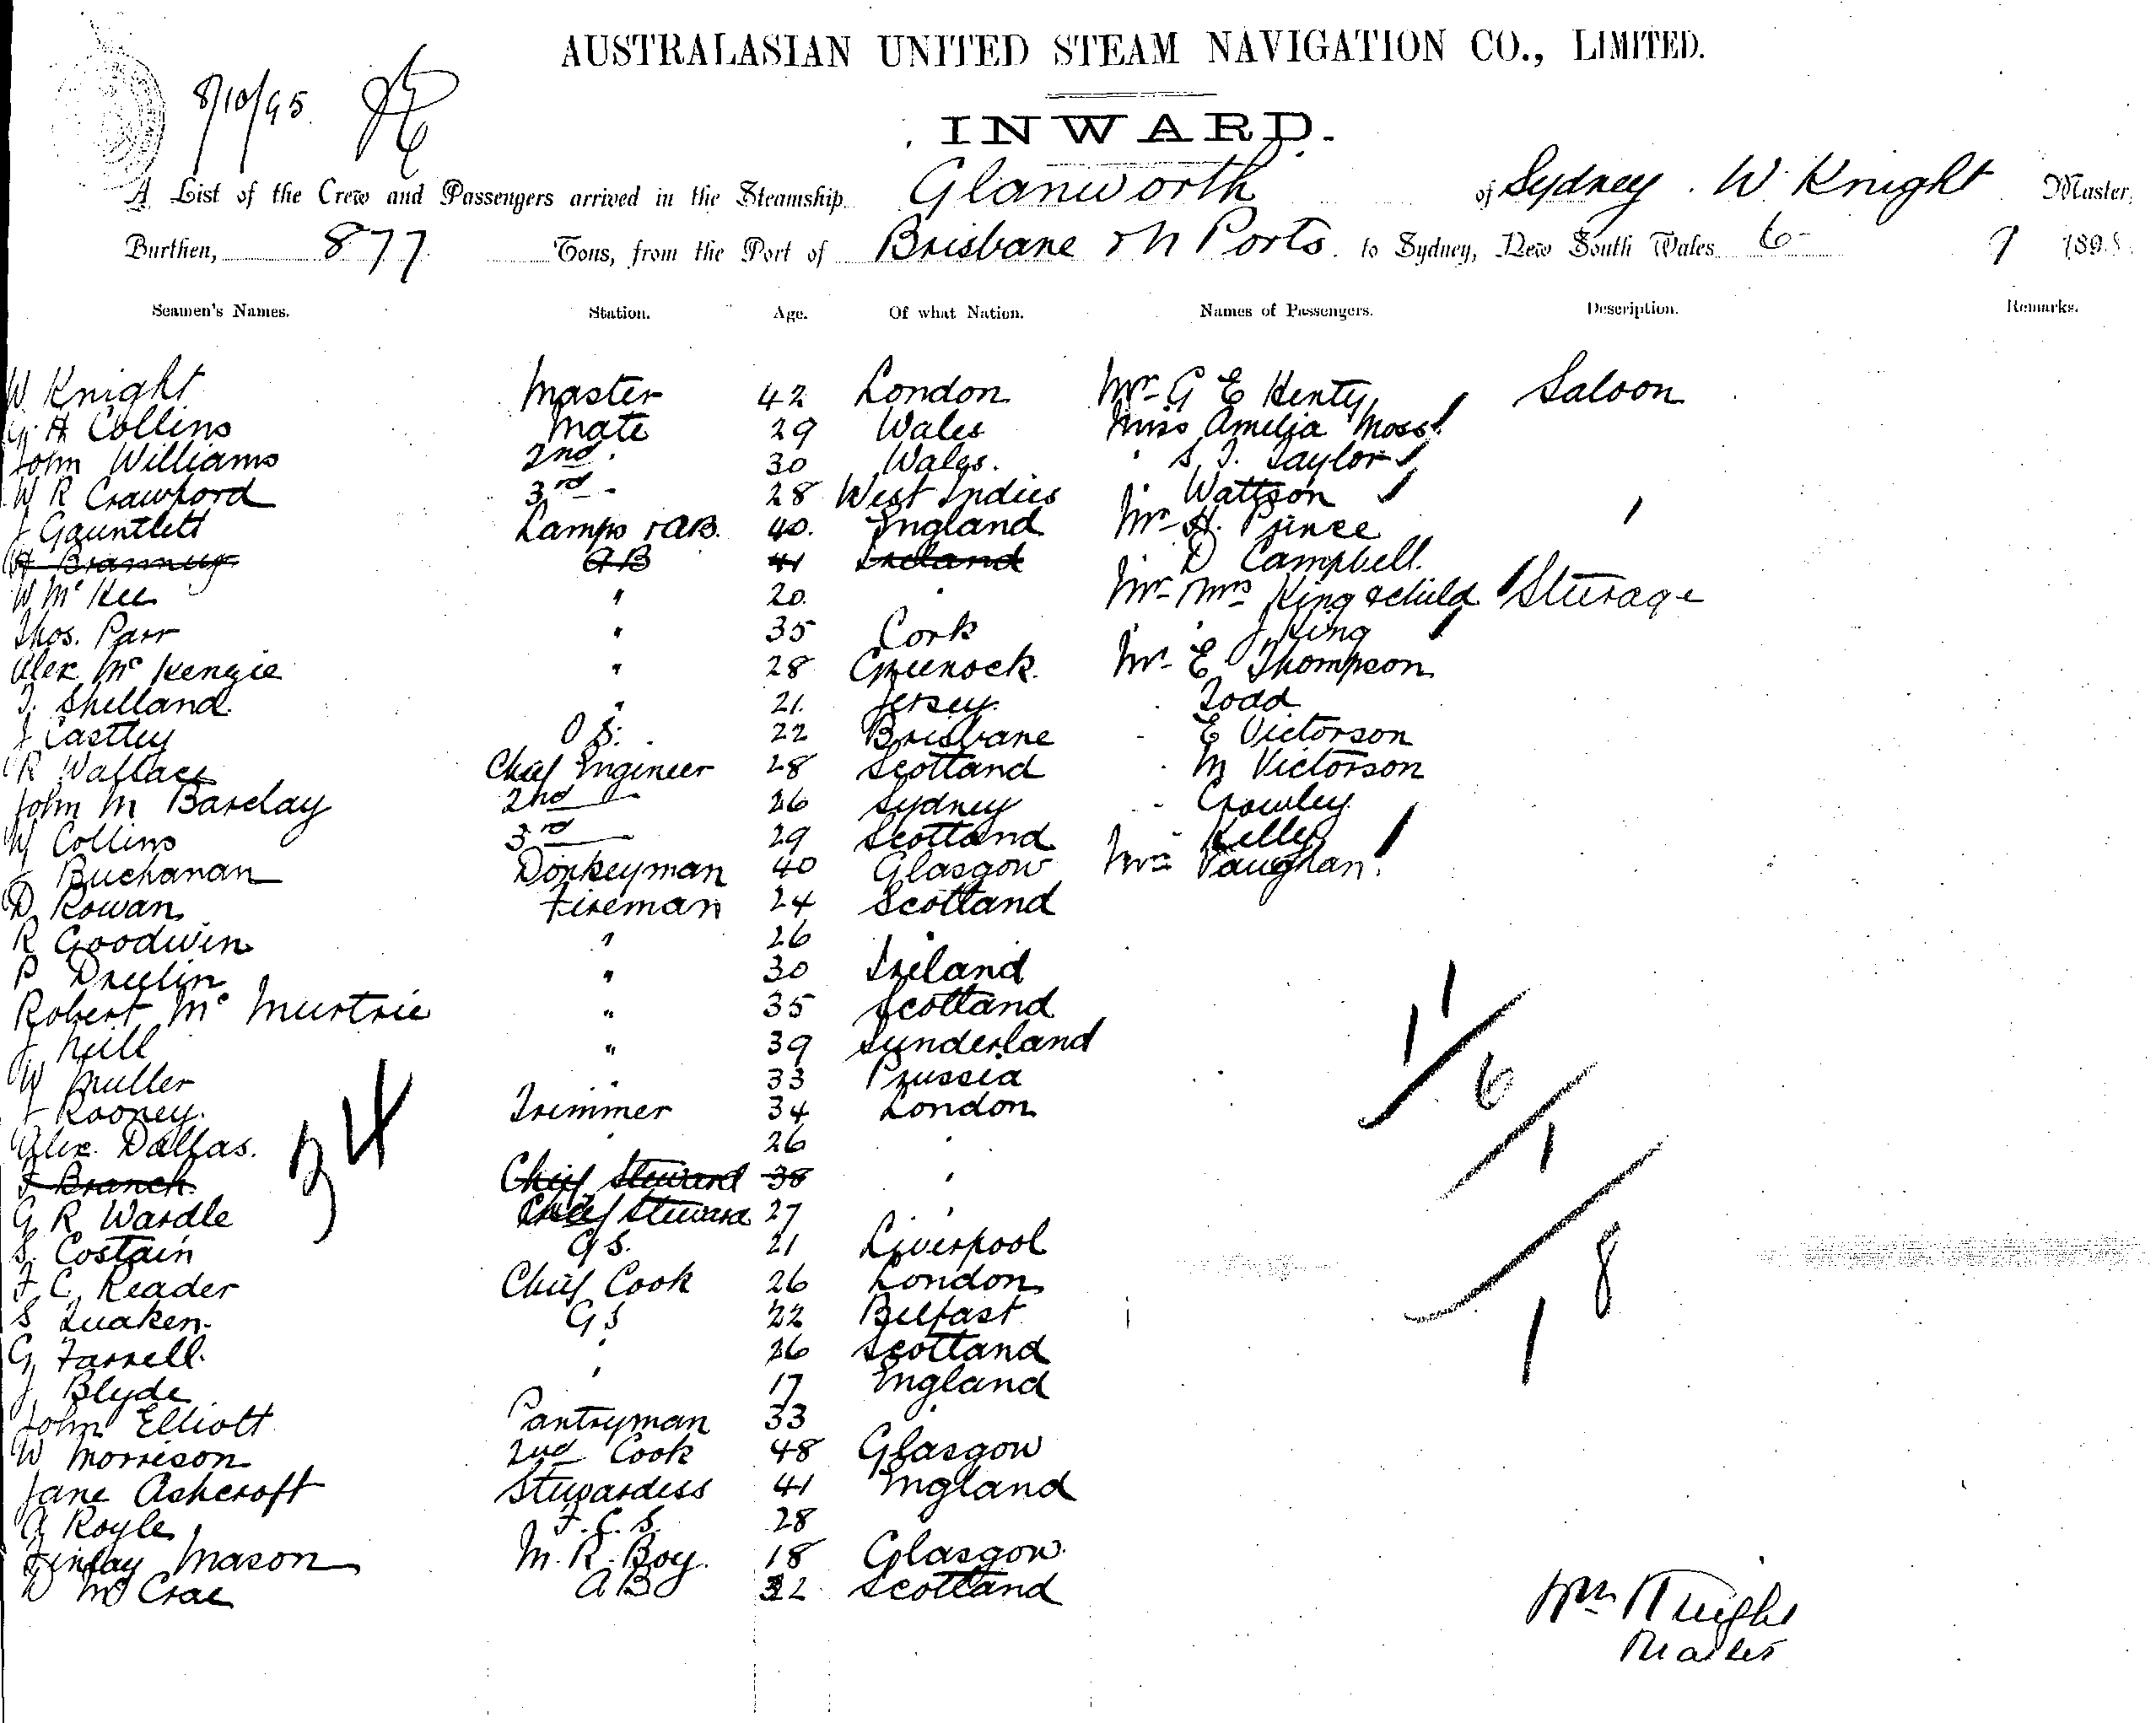 AUSTRALASIAN UNITED STEAM NAVIGATION CO., LIMITED.
8/10/95
INWARD.
A List of the Crew and Passengers arrived in the Steamship Glanworth of Sydney. W. Knight Master,
Burthen, 877 Tons, from the Port of Brisbane & N Ports to Sydney, New South Wales 6 189
Seamen's Names. Station. Age. Of what Nation. Names of Passengers. Description. Remarks.
W. Knight Master 42 London Mr G E Henty Saloon
H Collins Mate 29 Wales Miss Amelia Moss
John Williams 2nd " 30 Wales. " S. J. Taylor
W R Crawford 3rd " 28 West Indies " Wattson
J Gauntlett Lamps & AB. 40. England Mr H. Prince "
AB 41 Ireland " D Campbell.
W McKee " 20 " Mr Mrs King & child Steerage
Thos. Parr " 35 Cork " J King
Alex McKenzie " 28 Greenock. Mr E Thompson
T. Shelland. " 21. Jersey. " Todd
J Castley O S. 22 Brisbane " E Victorson
R Wallace Chief Engineer 28 Scotland " M Victorson
John M Barclay 2nd 26 Sydney " Crowley
W Collins 3rd 29 Scotland " Kelly
J Buchanan Donkeyman 40 Glasgow Mrs Vaughan
D Rowan Fireman 24 Scotland
R Goodwin " 26 "
P " 30 Ireland
Robert McMurtrie " 35 Scotland
J Neill " 39 Sunderland
W Muller " 33 Prussia
J Rooney. Trimmer 34 London
Alex. Dallas. " 26 "
34
F Branch Chief Steward 38 "
G R Wardle Chief Steward 27 "
S. Costain G S. 21 Liverpool
F C Reader Chief Cook 26 London
S Quaken. G S 22 Belfast
G Farrell. " 26 Scotland
J Blyde " 17 England
John Elliott Pantryman 33 "
W Morrison 2nd Cook 48 Glasgow
Jane Ashcroft Stewardess 41 England
A Royle F. C. S. 28
Finlay Mason M. R. Boy. 18 Glasgow.
D McCrae A B 32 Scotland
11/6/1/18
Wm Knight
Master